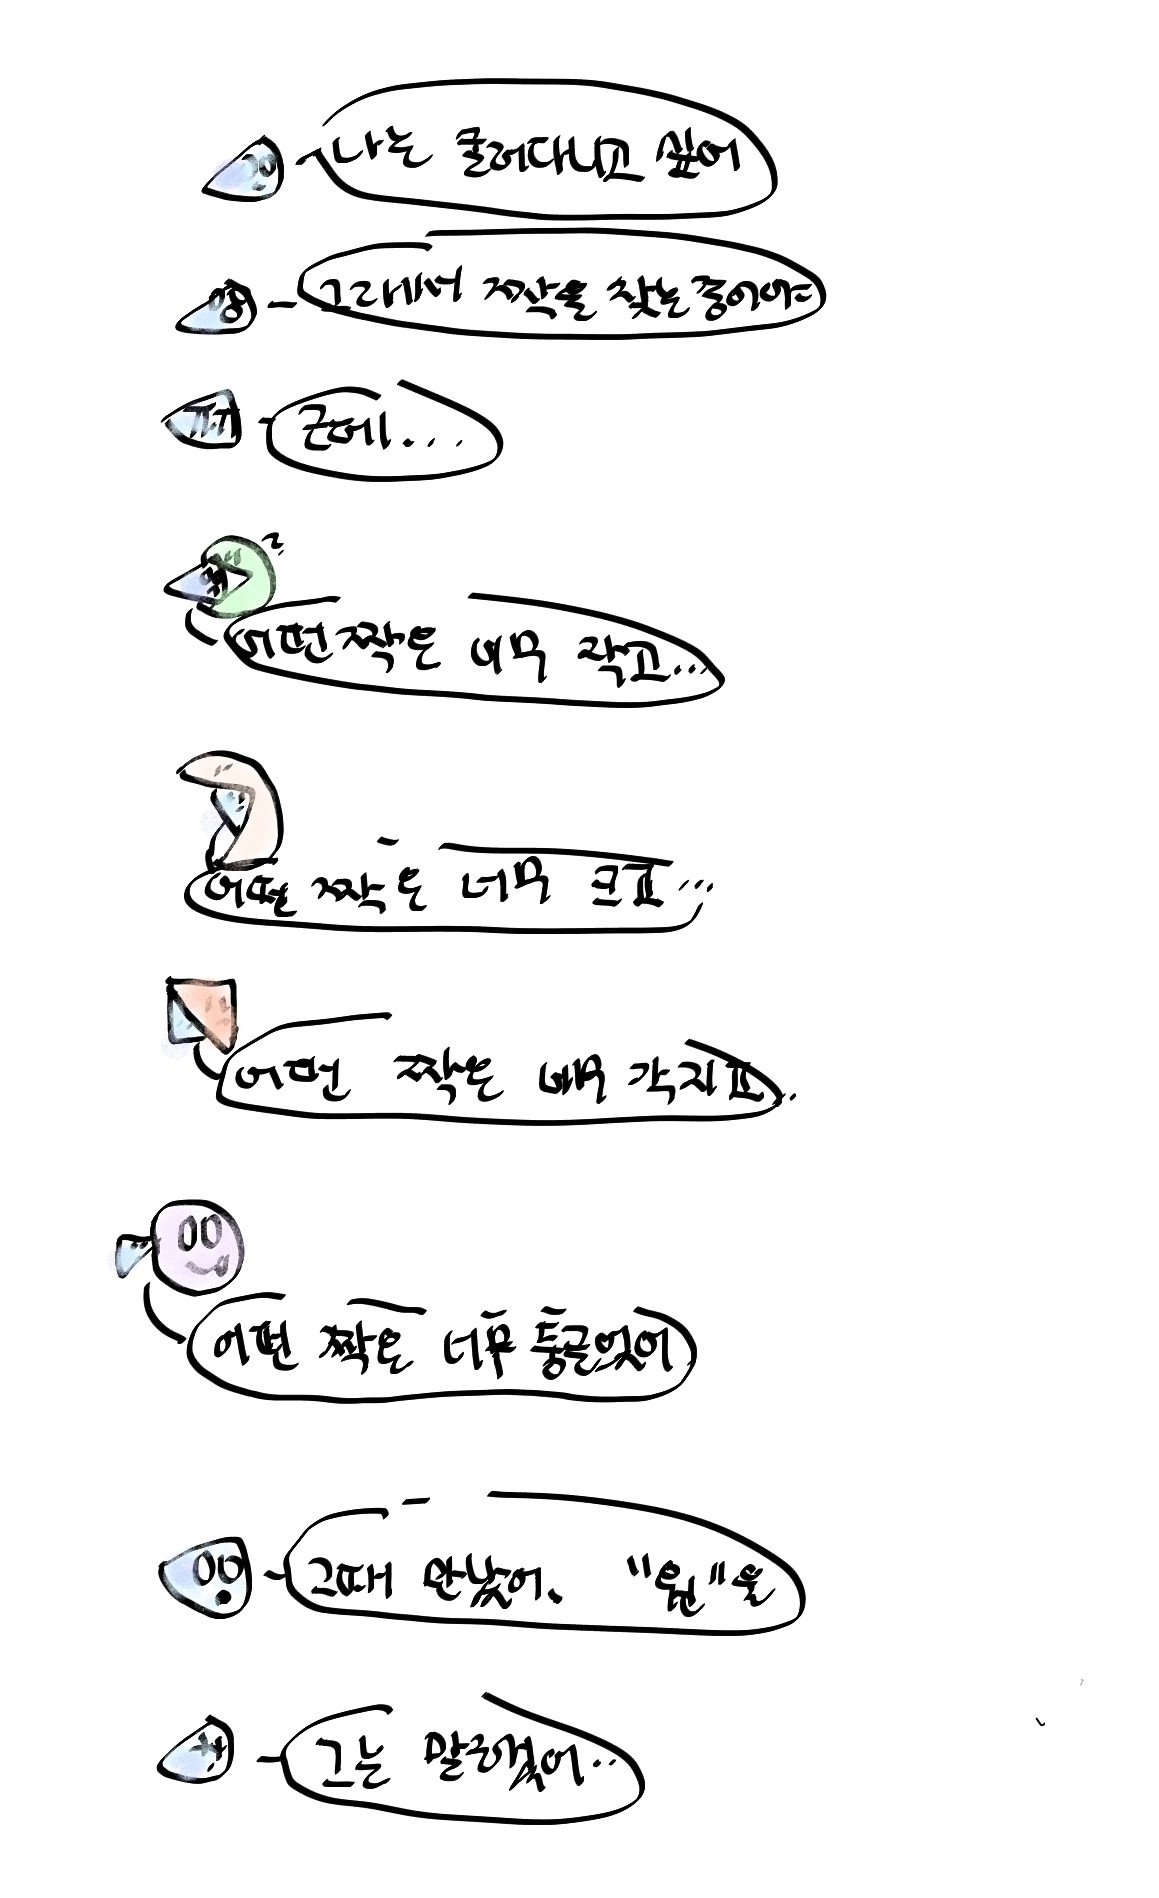 나는 굴러다니고 싶어
그래서 짝을 찾는 중이야
근데...
어떤 짝은 너무 작고...
어떤 짝은 너무 크고...
어떤 짝은 너무 각지고..
어떤 짝은 너무 둥글었어
그때 만났어. "원"을
그는 말을걸었어..